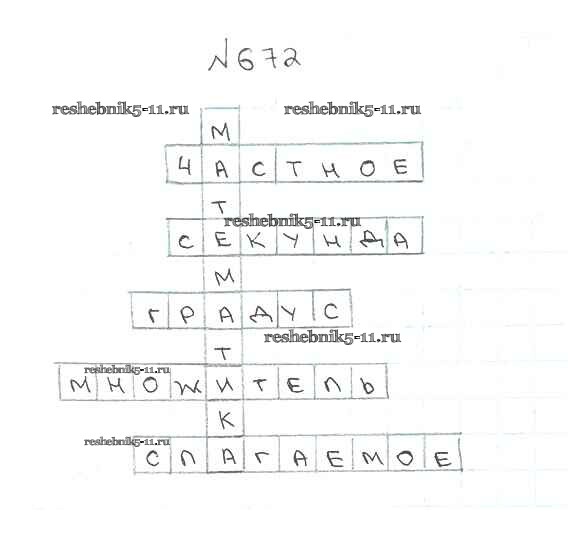 №672
reshebnik5-11.ru reshebnik5-11.ru
М
ЧАСТНОЕ
Т
reshebnik5-11.ru
СЕКУНДА
М
ГРАДУС
reshebnik5-11.ru
Т
reshebnik5-11.ru
МНОЖИТЕЛЬ
К
reshebnik5-11.ru
СЛАГАЕМОЕ